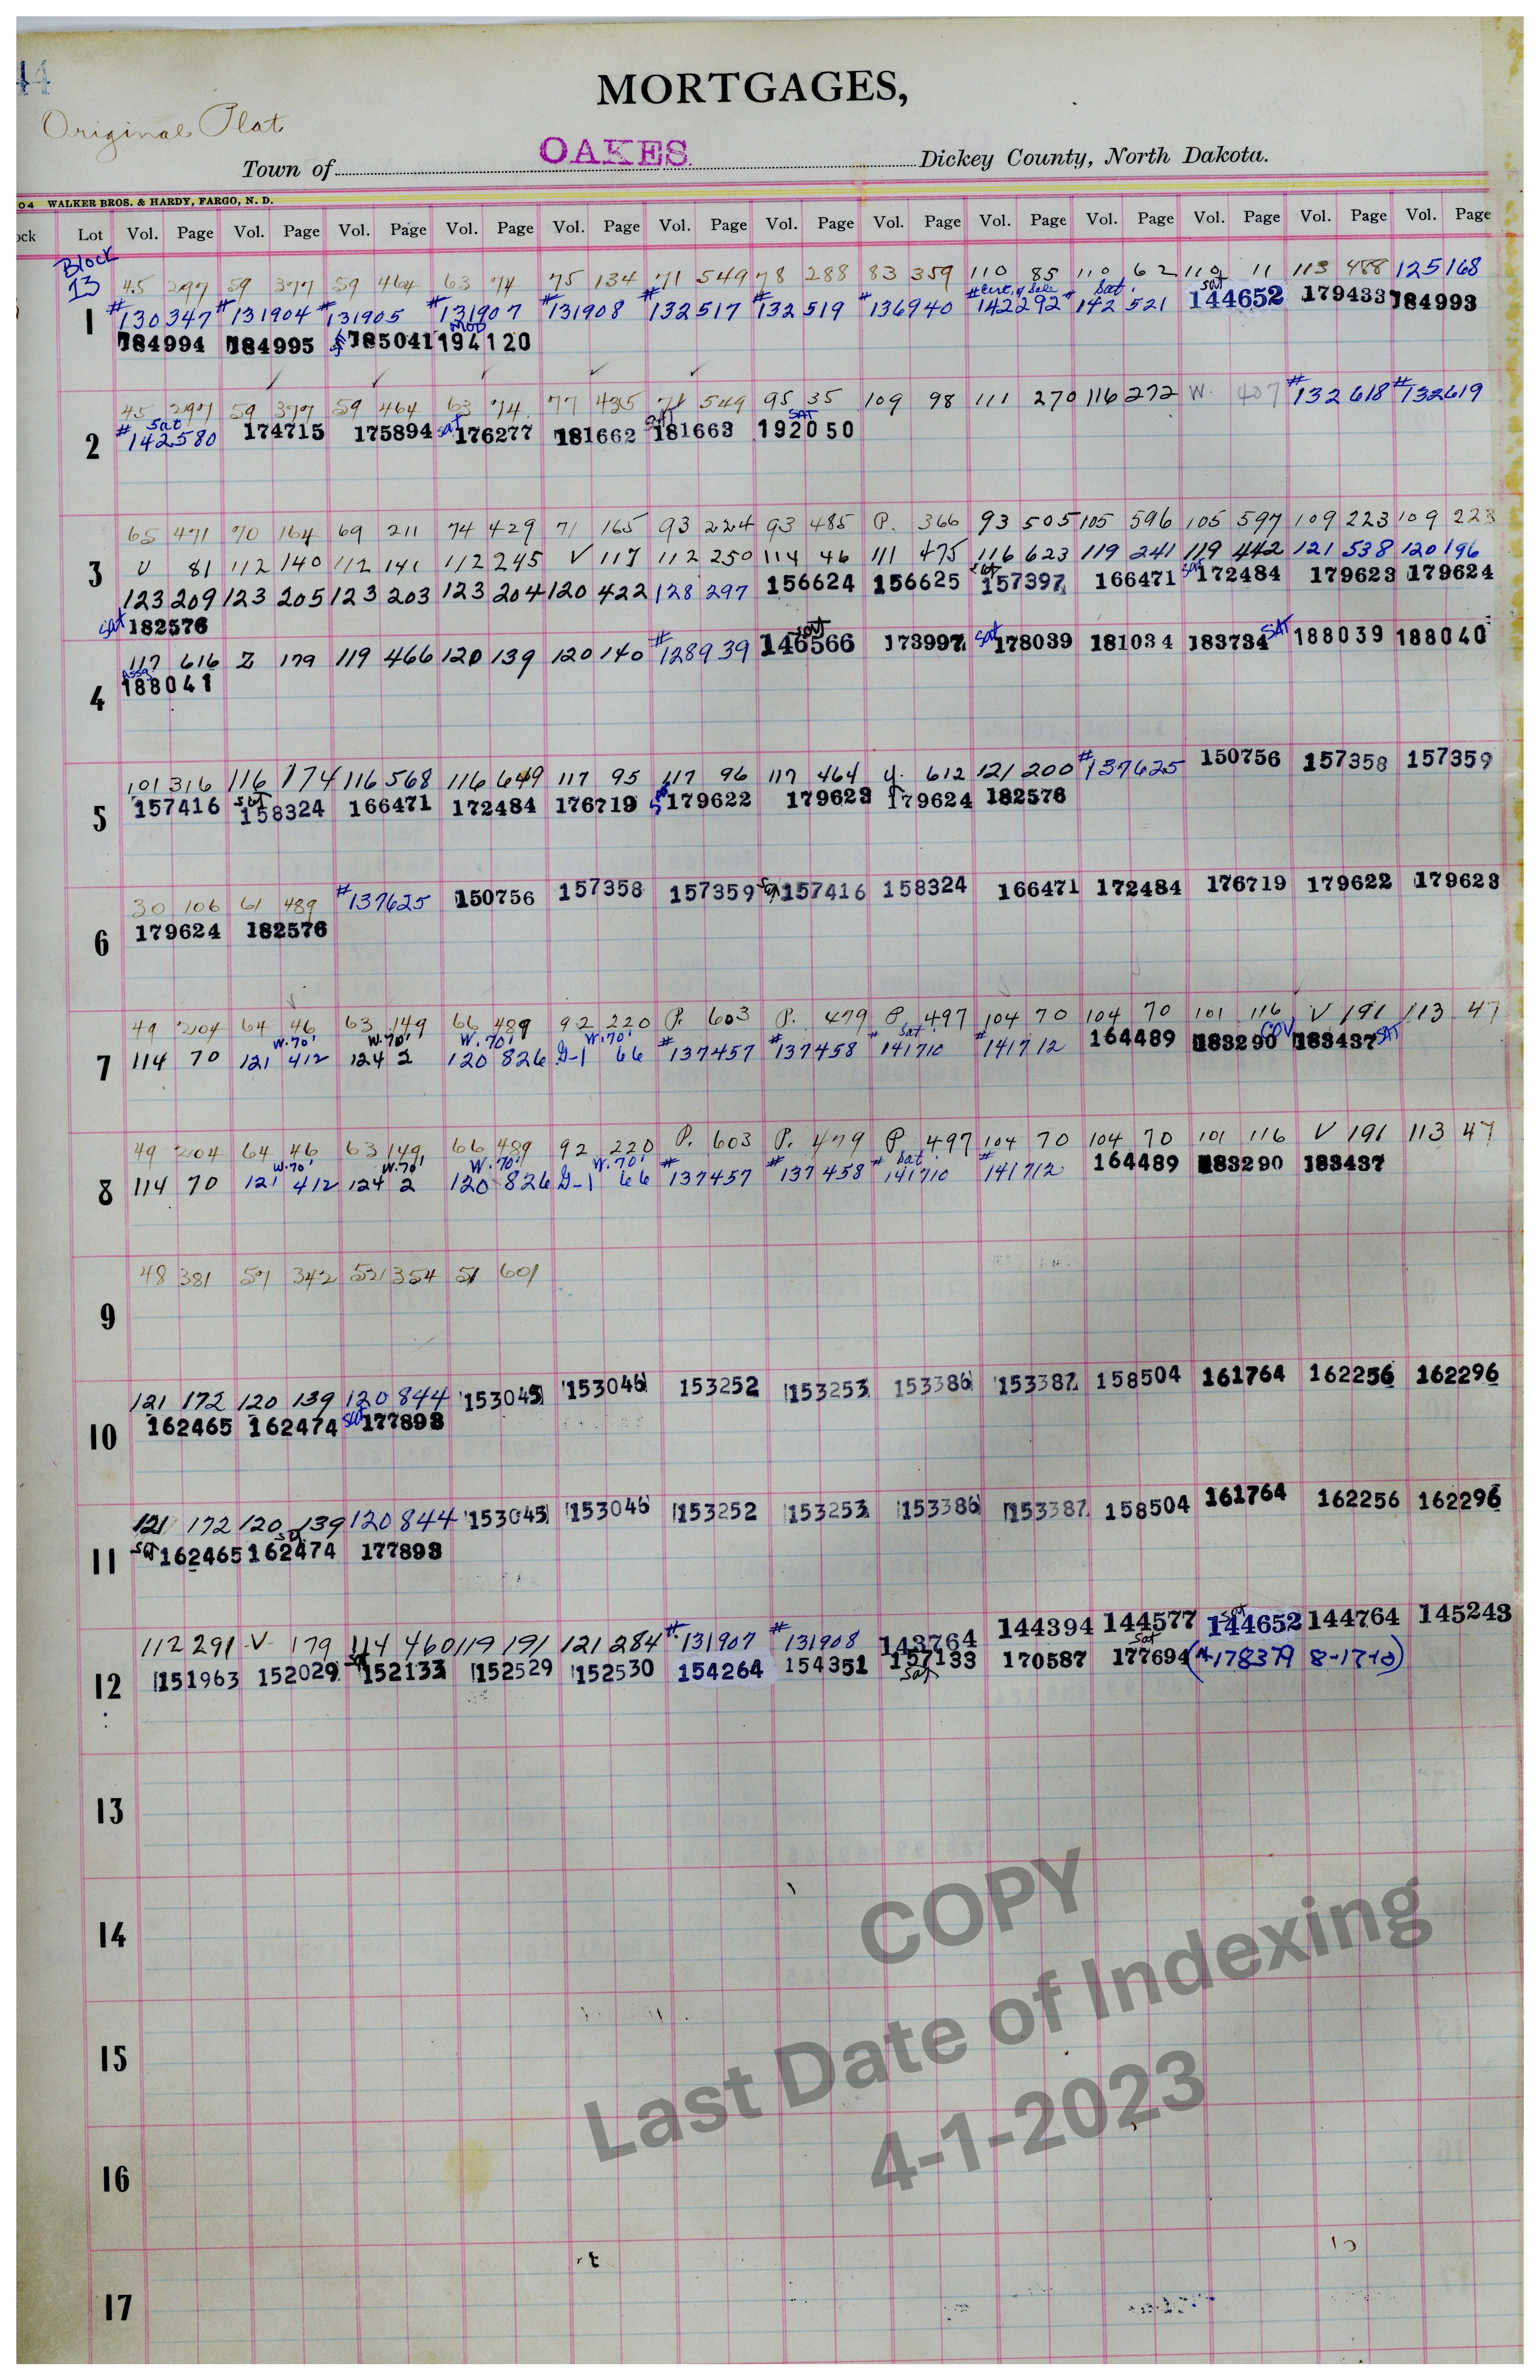 44
MORTGAGES,
Original Plat
Town of OAKES Dickey County, North Dakota.
04 WALKER BROS. & HARDY, FARGO, N. D.
ock Lot Vol. Page Vol. Page Vol. Page Vol. Page Vol. Page Vol. Page Vol. Page Vol. Page Vol. Page Vol. Page Vol. Page Vol. Page Vol. Page
Block
13 45 297 59 377 59 464 63 74 75 134 71 549 78 288 83 359 110 85 110 62 110 11 113 488 125 168
# Cert. of Sale Sat. sat
1 #130347 #131904 #131905 #131907 #131908 #132517 #132519 #136940 142292 #142521 144652 179433 184993
MOD
184994 184995 185041 194120
45 297 59 377 59 464 63 74 77 435 71 549 95 35 109 98 111 270 116 272 W. 407 #132618 #132619
2 # Sat 142580 174715 175894 Sat 176277 181662 Sat 181663 SAT 192050
65 471 70 164 69 211 74 429 71 165 93 224 93 485 P. 366 93 505 105 596 105 597 109 223 109 223
3 U 81 112 140 112 141 112 245 V 117 112 250 114 46 111 475 116 623 119 241 119 442 121 538 120 196
123 209 123 205 123 203 123 204 120 422 128 297 156624 156625 sat 157397 166471 sat 172484 179623 179624
sat 182576
117 616 Z 179 119 466 120 139 120 140 #128939 sat 146566 173997 Sat 178039 181034 183734 SAT 188039 188040
4 Assg 188041
101 316 116 174 116 568 116 649 117 95 117 96 117 464 Y. 612 121 200 #137625 150756 157358 157359
5 157416 sat 158324 166471 172484 176719 179622 179623 179624 182576
30 106 61 489 #137625 150756 157358 157359 Sat 157416 158324 166471 172484 176719 179622 179623
6 179624 182576
49 204 64 46 63 149 66 489 92 220 P. 603 P. 479 P. 497 104 70 104 70 101 116 V 191 113 47
W.70' W.70' W.70' W.70' Sat
7 114 70 121 412 124 2 120 826 G-1 66 #137457 #137458 #141710 #141712 164489 183290 183437 SAT
49 204 64 46 63 149 66 489 92 220 P. 603 P. 479 P. 497 104 70 104 70 101 116 V 191 113 47
W.70' W.70' W.70' W.70' Sat
8 114 70 121 412 124 2 120 826 G-1 66 #137457 #137458 #141710 #141712 164489 183290 183437
48 381 51 342 52 354 51 601
9
121 172 120 139 120 844 153045 153046 153252 153253 153386 153387 158504 161764 162256 162296
10 162465 162474 sat 177893
121 172 120 139 120 844 153045 153046 153252 153253 153386 153387 158504 161764 162256 162296
11 sat 162465 sat 162474 177893
112 291 V 179 114 460 119 191 121 284 #131907 #131908 143764 144394 144577 sat 144652 144764 145243
12 151963 152029 sat 152133 152529 152530 154264 154351 157133 170587 sat 177694 (#178379 8-17-10)
sat
13
14
15
16
17
COPY
Last Date of Indexing
4-1-2023